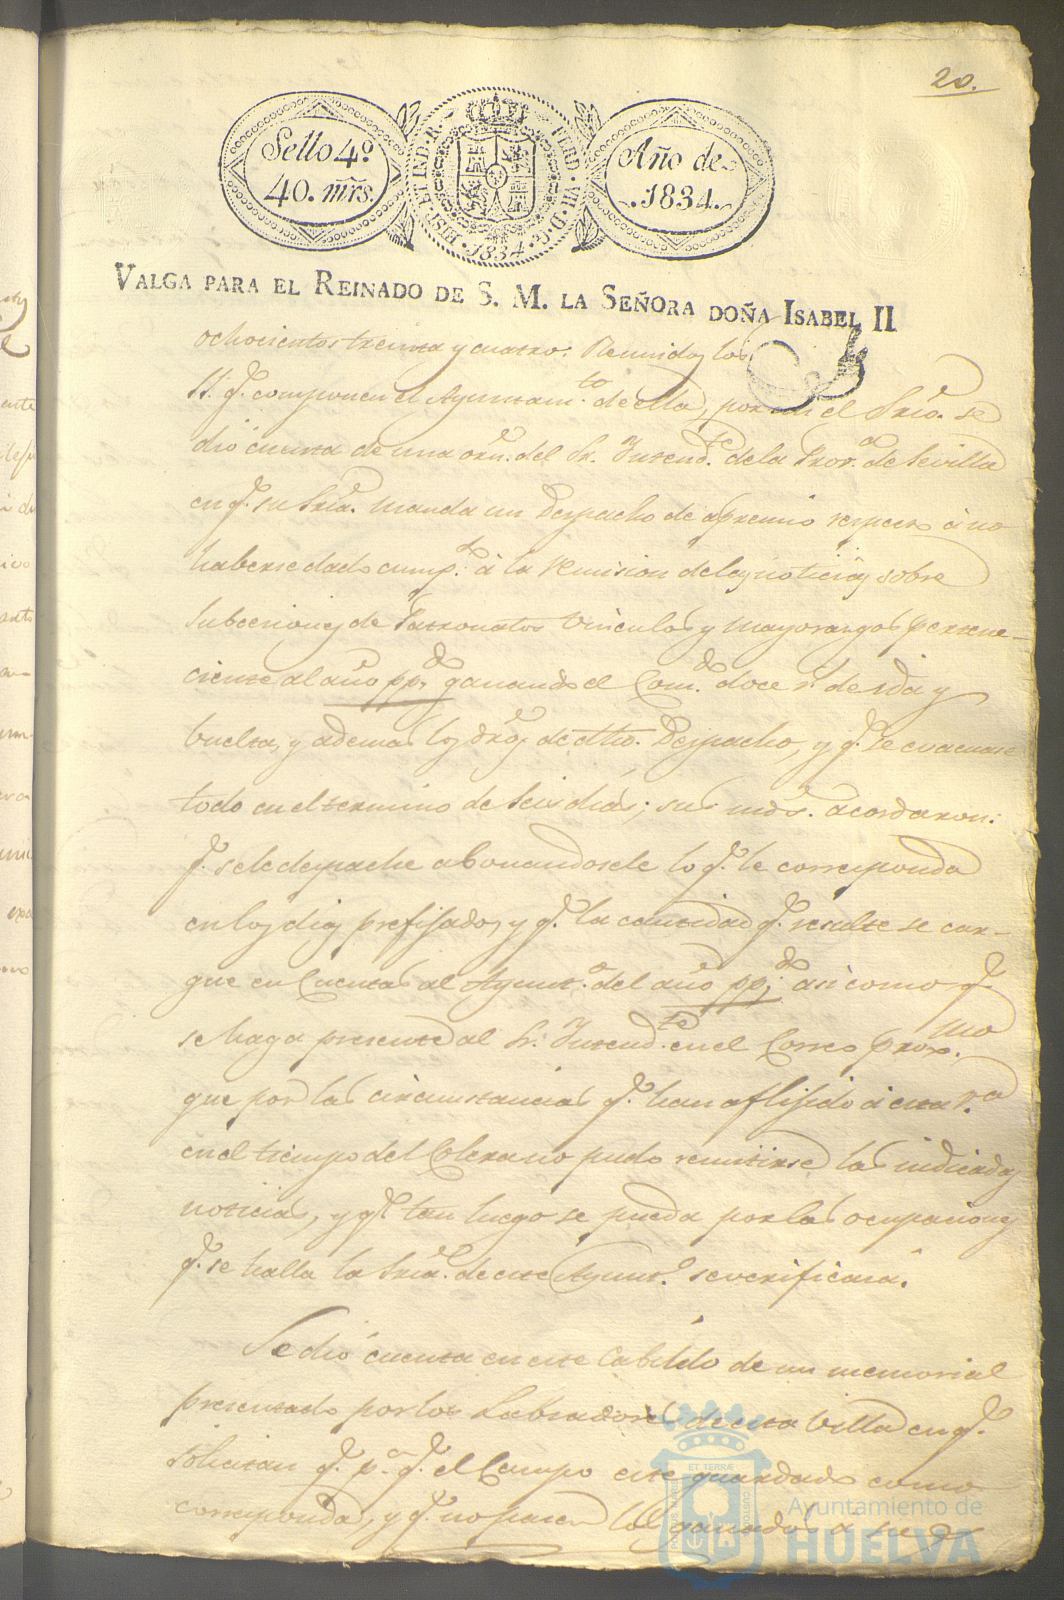 20.
Sello 4º
40. mrs.
HISP. ET IND. R. FERD. VII. D. G. 1834.
Año de
1834.
VALGA PARA EL REINADO DE S. M. LA SEÑORA DOÑA ISABEL II
ochocientos treinta y cuatro: Reunidos los
SS. q.e componen el Ayuntam.to de ella, por mi el Srio. se
dió cuenta de una orn. del Sr. Intend.te de la Prov.a de Sevilla
en q.e su Sria. manda un Despacho de apremio respecto á no
haberse dado cump.to á la remision de las noticias sobre
Subcesiones de Patronatos Vinculos y mayorasgos pertene-
ciente al año pp.do ganando el Com.do doce r.s de ida y
vuelta, y ademas los dros. de dho. Despacho, y q.e se evacuase
todo en el termino de seis dias; sus mds. acordaron:
q.e se le despache abonandosele lo q.e le corresponda
en los dias prefijados, y q.e la cantidad q.e resulte se car-
gue en Cuentas al Ayunt.o del año pp.do asi como q.e
se haga presente al Sr. Intend.te en el Correo prox.mo
que por las circunstancias q.e han aflijido á esta V.a
en el tiempo del Colera no pudo remitirse las indicadas
noticias, y q.e tan luego se pueda por las ocupaciones
q.e se halla la Sria. de este Ayunt.o se verificará.
Se dió cuenta en este Cabildo de un memorial
presentado por los Labradores de esta Villa en q.e
solicitan q.e p.a q.e el Campo este guardado como
corresponda, y q.e no pasen los ganados a
ET TERRÆ
CUSTODIA
PORTUS MARIS
Ayuntamiento de
HUELVA